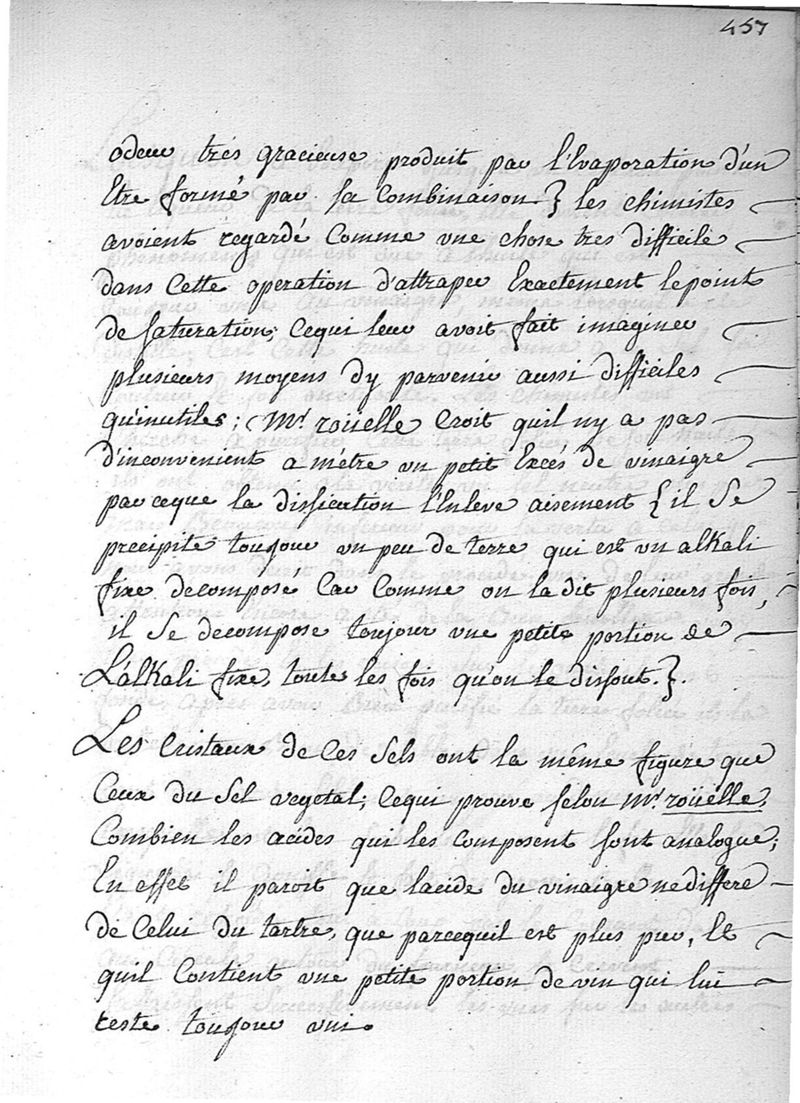 457
odeur trés gracieuse produit par l'Evaporation d'un
Etre formé par sa Combinaison } les chimistes
avoient regardé Comme vne chose tres difficile
dans Cette operation d'attraper Exactement le point
de saturation; Cequi leur avoit fait imaginer
plusieurs moyens dy parvenir aussi difficiles
qu'inutiles; Mr. roüelle Croit quil ny a pas
d'inconvenient a métre un petit Excés de vinaigre
par ceque la dissication l'Enleve aisement { il Se
precipite toujour un peu de terre qui est vn alkali
fixe decomposé Car Comme on la dit plusieurs fois,
il Se decompose toujour vne petite portion de
L'alkali fixe, toutes les fois qu'on le dissout. }.
Les Cristaux de Ces Sels ont la méme figure que
Ceux du Sel vegetal; Cequi prouve selon Mr. roüelle,
Combien les acides qui les Composent sont analogue;
En effet il paroit que lacide du vinaigre ne differe
de Celui du tartre, que parcequil est plus pur, Et
quil Contient vne petite portion de vin qui lui
reste toujour vni.